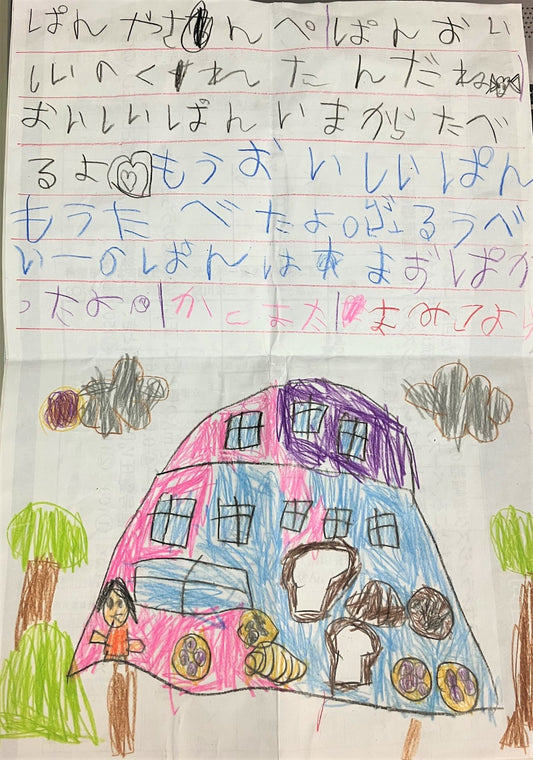 ぱんやさんへ ぱんおい
しいのくれた んだね
おいしいぱんいまからたべ
るよ もうおいしいぱん
もうたべたよ ぶるうべ
いーのぱんは まずぱか
ったよ かこよた まみてよ